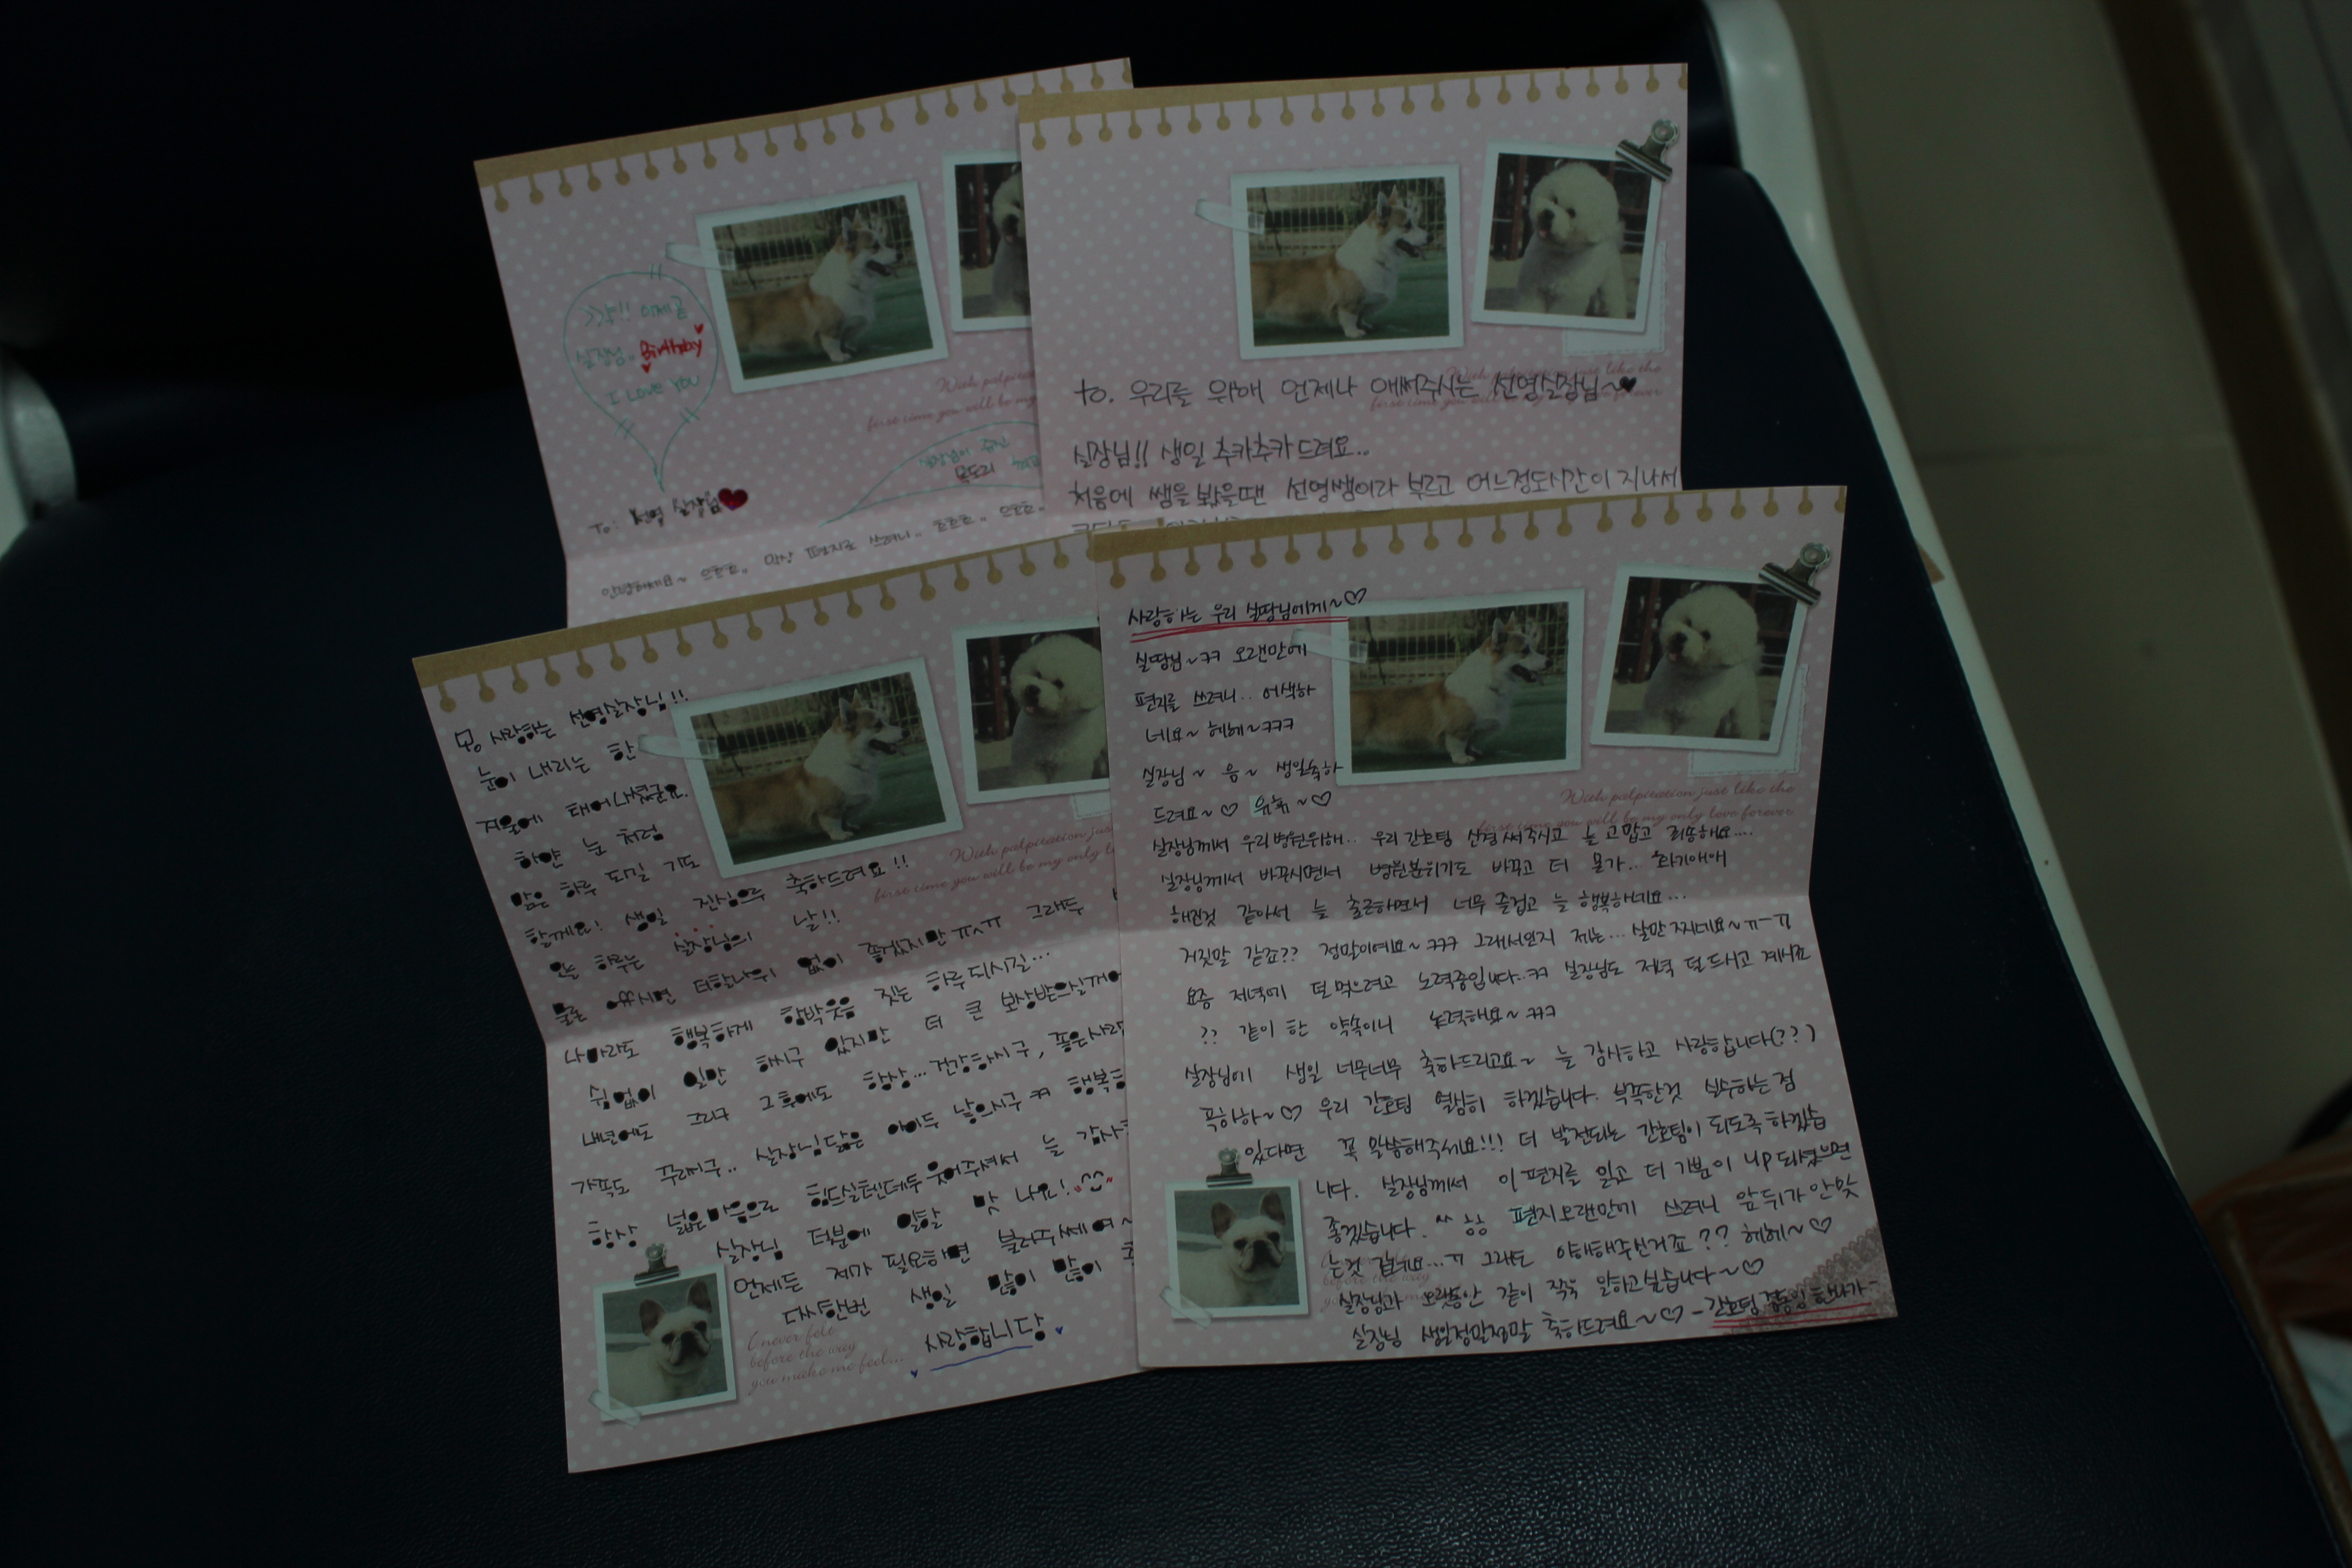 이제 곧
실장님.. Birthday
I Love You
실장님이 주신
목도리
To: 선영 실장님♥
안녕하세요~ 으흐흐.. 막상 편지로 쓰려니.. 흐흐흐.. 으흐흐..
With palpitation
first time you will be my
to. 우리를 위해 언제나 애써주시는 선영실장님~♥
With palpitation just like the
first time you will be my only love forever
실장님!! 생일 추카추카드려요..
처음에 쌤을 봤을땐 선영쌤이라 부르고 어느정도시간이 지나서
사랑하는 선영실장님!!
눈이 내리는 한
겨울에 태어나셨군요.
하얀 눈 처럼
맑은 하루 되길 기도
할께요! 생일 진심으로 축하드려요!!
오늘 하루는 실장님의 날!!
물론 쉬시면 더할나위 없이 좋겠지만 ㅠ^ㅠ 그래두
나마라도 행복하게 함박웃음 짓는 하루되시길...
쉼없이 일만 하시구 있지만 더 큰 보상받으실꺼에
내년에도 그리고 그후에도 항상... 건강하시구, 좋은사람
가족도 꾸리시구.. 실장님닮은 아이두 낳으시구 ㅋㅋ 행복한
항상 넓은마음으로 힘드실텐데두 웃어주셔서 늘 감사
실장님 덕분에 일할 맛 나요! ^^
언제든 제가 필요하면 불러주세여~
다시한번 생일 많이 많이 축
사랑합니당
With palpitation just
first time you will be my only l
I never felt
before the way
you make me feel...
사랑하는 우리 실땅님에게~♡
실땅님~ㅋㅋ 오랜만에
편지를 쓰려니.. 어색하
네요~ 헤헤~ㅋㅋㅋ
실장님~ 음~ 생일축하
드려요~♡ ~♡
With palpitation just like the
first time you will be my only love forever
실장님께서 우리병원위해.. 우리간호팀 신경써주시고 늘 고맙고 죄송해요....
실장님께서 바꾸시면서 병원분위기도 바꾸고 더 몰가... 화기애애
해진것 같아서 늘 출근하면서 너무 즐겁고 늘 행복하네요...
거짓말 같죠?? 정말이에요~ㅋㅋㅋ 그래서인지 저는... 살만 찌네요~ㅠ-ㅠ
요즘 저녁에 덜먹으려고 노력중입니다..ㅋㅋ 실장님도 저녁 덜드시고 계시죠
?? 같이 한 약속이니 노력해요~ㅋㅋㅋ
실장님에 생일 너무너무 축하드리고요~ 늘 감사하고 사랑합니다(??)
푸하하~♡ 우리 간호팀 열심히 하겠습니다. 부족한것 실수하는점
있다면 꼭 말씀해주세요!!! 더 발전되는 간호팀이 되도록 하겠습
니다. 실장님께서 이 편지를 읽고 더 기분이 up되셨으면
좋겠습니다. ^^ 하하 편지오랜만에 쓰려니 앞뒤가안맞
는것 같네요...ㅠ 그래도 이해해주신거죠?? 헤헤~♡
실장님과 오랫동안 같이 쭈욱 일하고싶습니다~♡
실장님 생일정말정말 축하드려요~♡ -간호팀